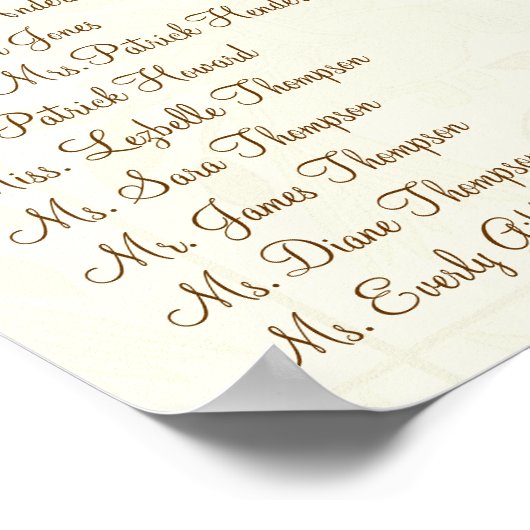 Jones
Mrs. Patrick
Patrick Howard
Miss. Lezbelle Thompson
Ms. Sara Thompson
Mr. James Thompson
Ms. Diane Thompson
Ms. Everly